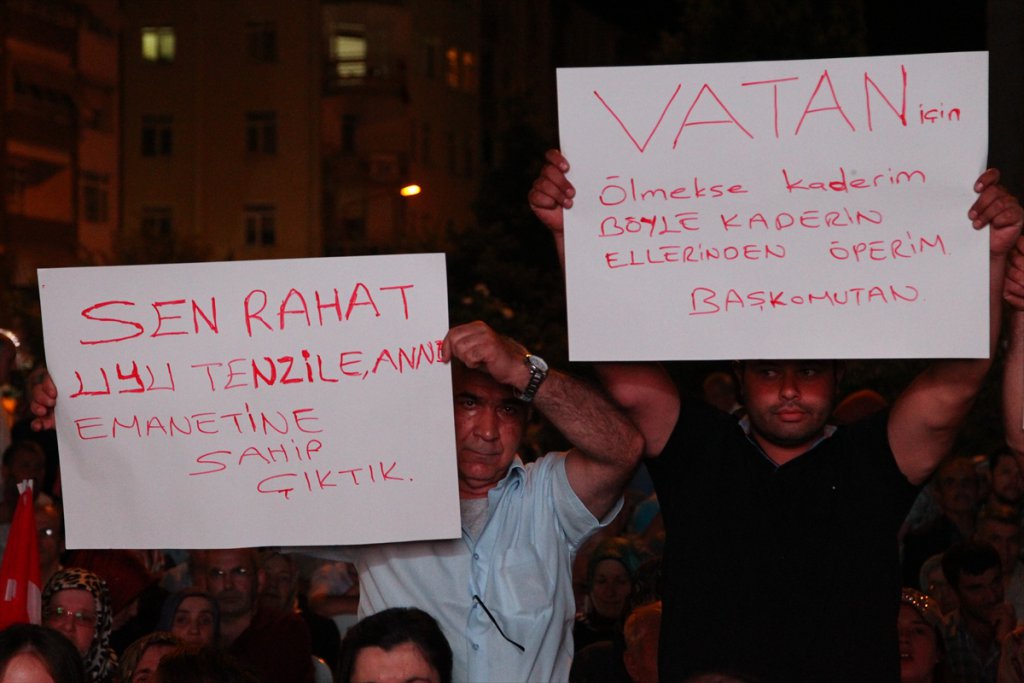 SEN RAHAT
UYU TENZİLE, ANNE
EMANETİNE
SAHİP
ÇIKTIK.
VATAN için
Ölmekse kaderim
BÖYLE KADERİN
ELLERİNDEN ÖPERİM.
BAŞKOMUTAN.